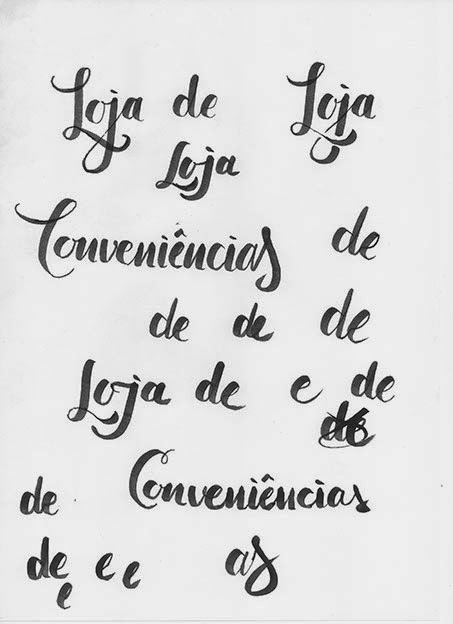 Loja de Loja
Loja
Conveniências de
de de de
Loja de e de
de
Conveniências
de
de e e as
e